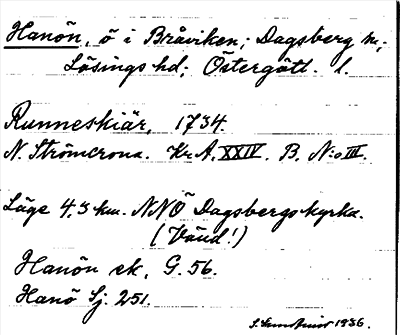 Hanön, ö i Bråviken; Dagsberg sn,
Lösings hd; Östergötl. l.
Runneskiär, 1734.
N. Strömcrona. Kr.A. XXIV. B. N:o III.
Läge 4.3 km. NNÖ Dagsbergs kyrka.
(Vänd!)
Hanön ek. G. 56.
Hanö Sj. 251.
1936.